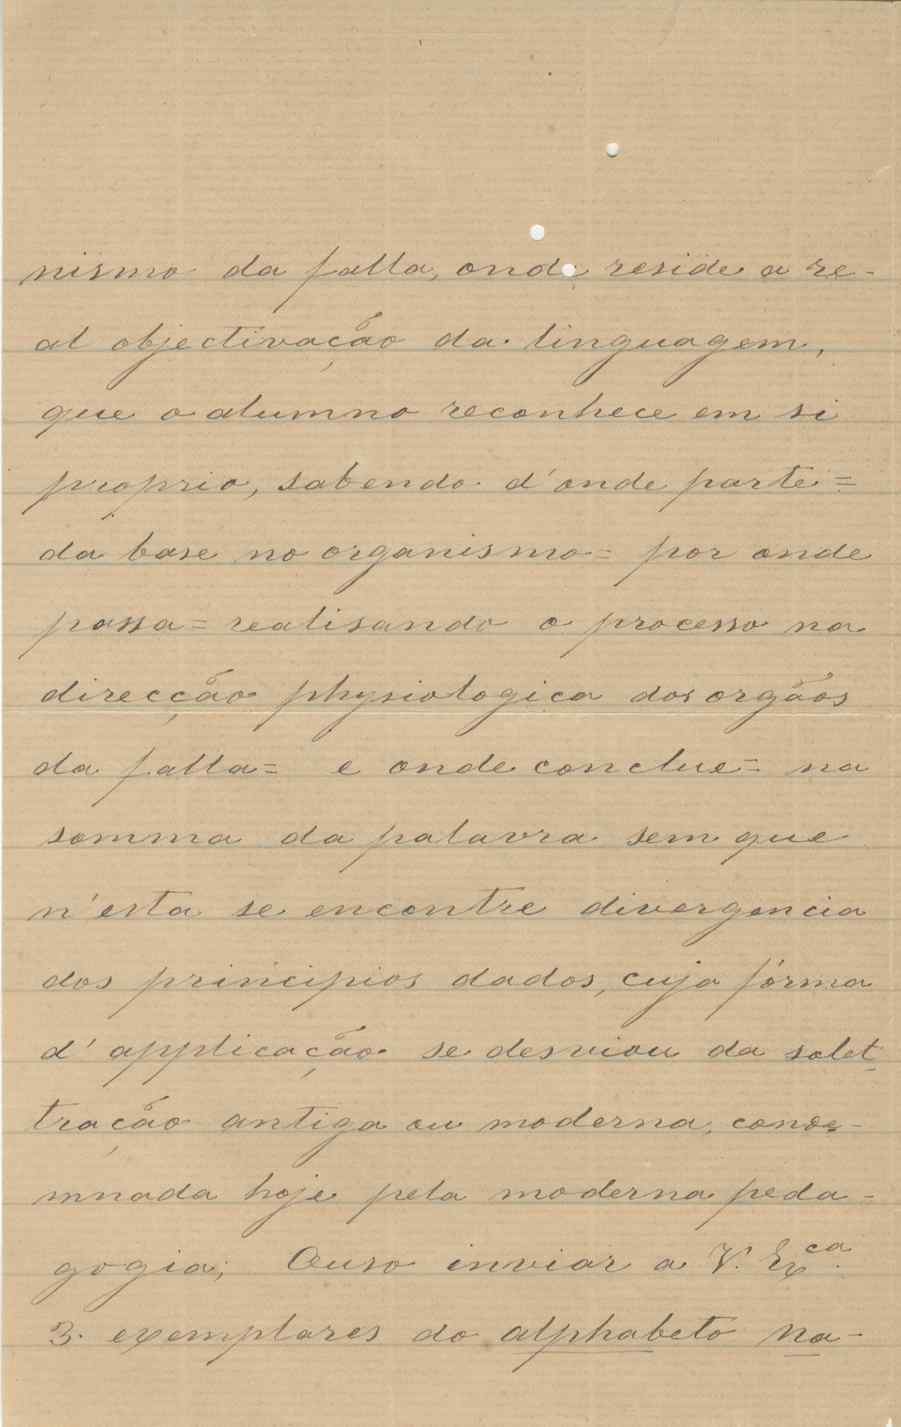 nismo da falla, onde reside a re-
al objectivação da linguagem,
que o alumno reconhece em si
proprio, sabendo d'onde parte =
da base no organismo = por onde
passa = realisando o processo na
direcção physiologica dos orgãos
da falla = e onde conclue = na
somma da palavra sem que
n'esta se encontre divergencia
dos principios dados, cuja fórma
d'applicação se desviou da solet-
tração antiga ou moderna, conde-
mnada hoje pela moderna peda-
gogia; Ouso inviar a V. Exca.
3. exemplares do alphabeto na-